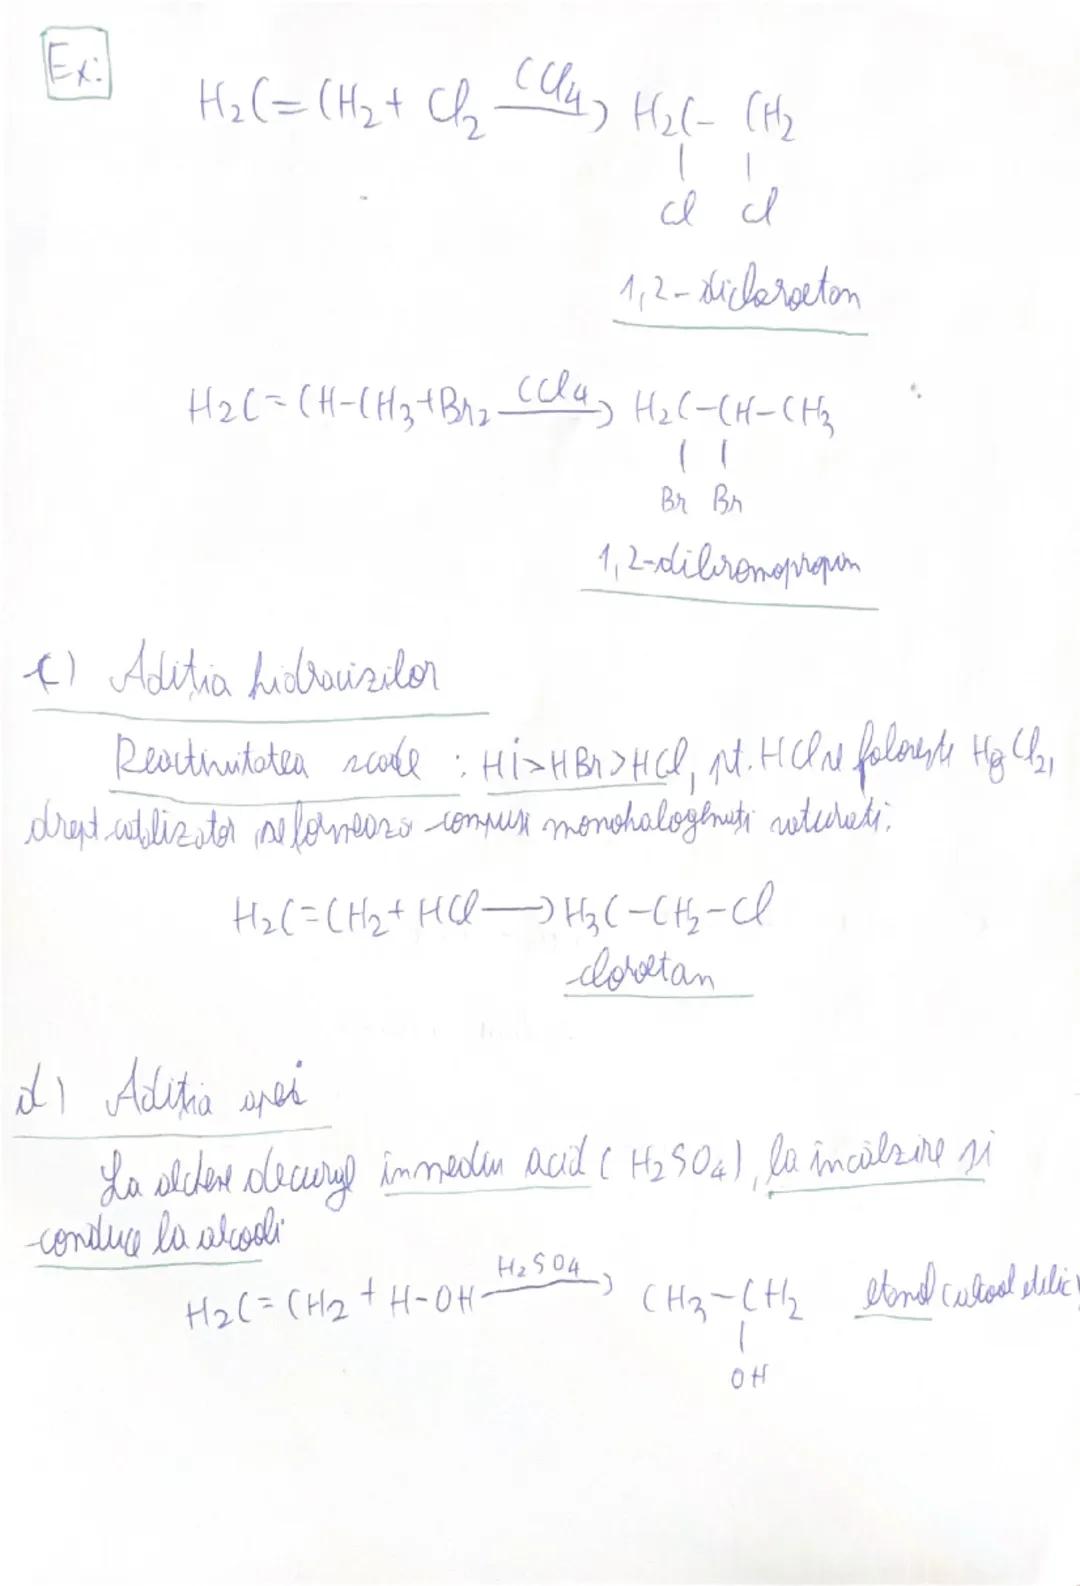 Ex:
H₂C=CH₂ + Cl₂ —CCl₄→ H₂C - CH₂
| |
Cl Cl
1,2-dicloroetan
H₂C=CH-CH₃+Br₂ —CCl₄→ H₂C-CH-CH₃
| |
Br Br
1,2-dibromopropan
c) Aditia hidracizilor
Reactivitatea scade : Hi>HBr>HCl, pt. HCl se folosește HgCl₂,
drept catalizator se formează compuși monohalogenați saturați:
H₂C=CH₂+ HCl → H₃C-CH₂-Cl
cloroetan
d) Aditia apei
La alchene decurge in mediu acid (H₂SO₄), la încălzire si
conduce la alcooli
H₂C=CH₂ + H-OH —H₂SO4→ CH₃-CH₂ etanol (alcool etilic)
|
OH